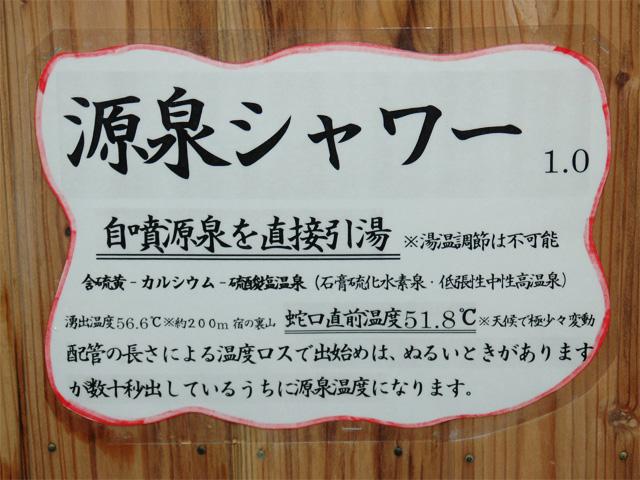 源泉シャワー 1.0
自噴源泉を直接引湯 ※湯温調節は不可能
含硫黄-カルシウム-硫酸塩温泉（石膏硫化水素泉・低張性中性高温泉）
湧出温度56.6℃※約200m宿の裏山 蛇口直前温度51.8℃※天候で極少々変動
配管の長さによる温度ロスで出始めは、ぬるいときがあります
が数十秒出しているうちに源泉温度になります。